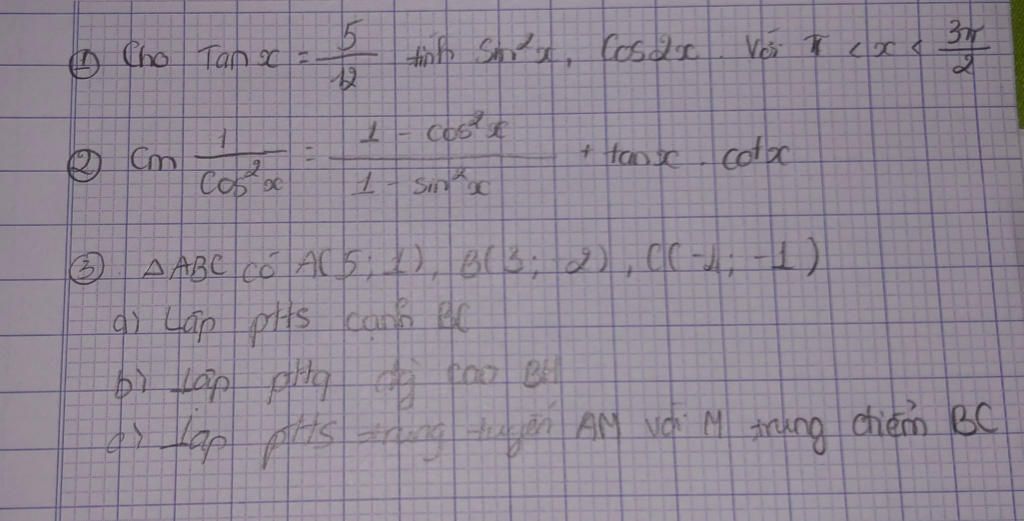 ① Cho Tan x = 5/12 tính sin²x, Cos2x. Với π < x < 3π/2
② Cm 1/cos²x = (1 - cos²x)/(1 - sin²x) + tanx . cotx
③ △ABC có A(5; 1), B(3; 2), C(-1; -1)
a) Lập ptts cạnh BC
b) Lập pttq đg cao BH
c) Lập ptts trung tuyến AM với M trung điểm BC